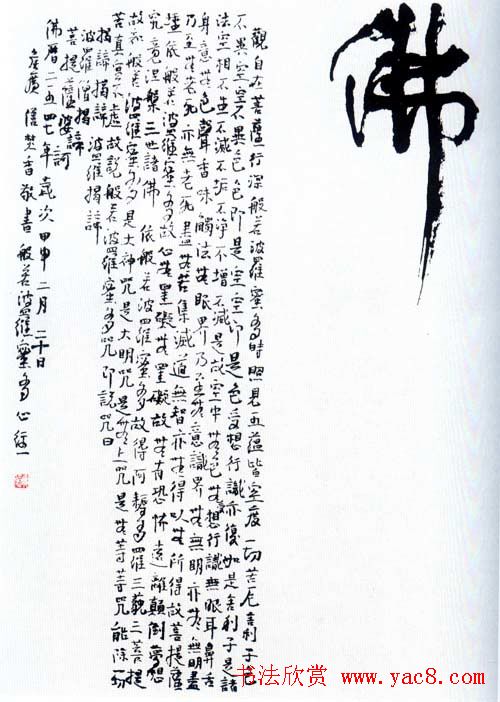 佛
觀自在菩薩行深般若波羅蜜多時照見五蘊皆空度一切苦厄舍利子色
不異空空不異色色即是空空即是色受想行識亦復如是舍利子是諸
法空相不生不滅不垢不淨不增不減是故空中無色無受想行識無眼耳鼻舌
身意無色聲香味觸法無眼界乃至無意識界無無明亦無無明盡
乃至無老死亦無老死盡無苦集滅道無智亦無得以無所得故菩提薩
埵依般若波羅蜜多故心無罣礙無罣礙故無有恐怖遠離顛倒夢想
究竟涅槃三世諸佛依般若波羅蜜多故得阿耨多羅三藐三菩提
故知般若波羅蜜多是大神咒是大明咒是無上咒是無等等咒能除一切
苦真實不虛故說般若波羅蜜多咒即說咒曰
揭諦揭諦波羅揭諦
波羅僧揭諦
菩提薩婆訶
佛曆二五四七年歲次甲申二月二十日
廣信焚香敬書般若波羅蜜多心經一
书法欣赏 www.yac8.com